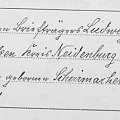 en Briefträgers Ludwig
ken Kreis Neidenburg
geborenen Schirmacher